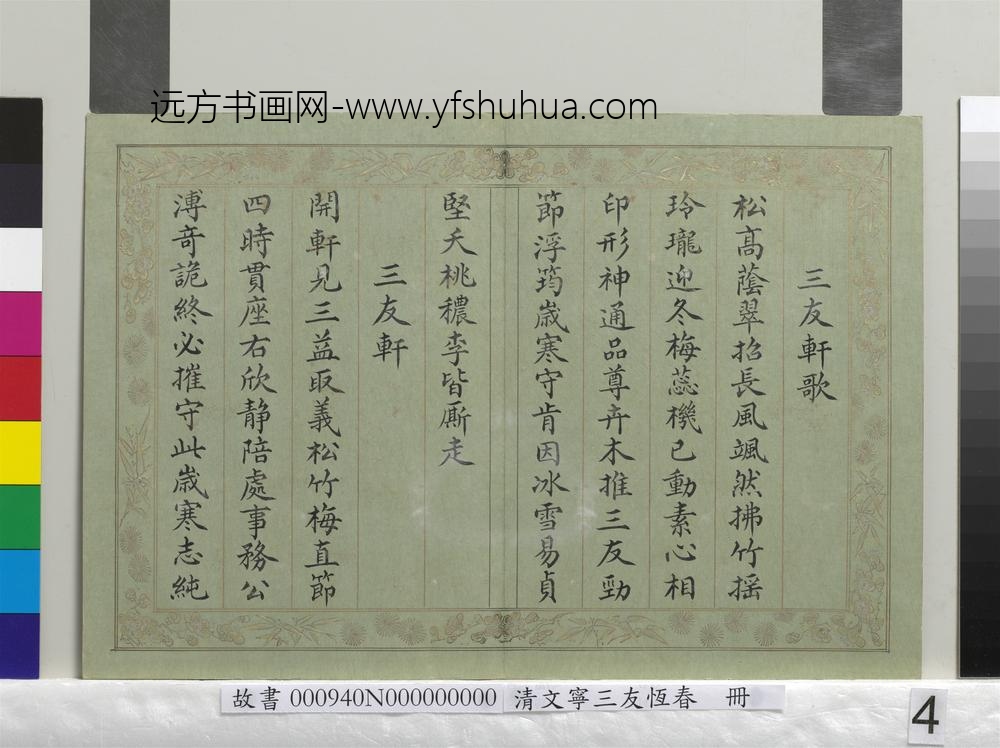 远方书画网-www.yfshuhua.com
三友軒歌
松高蔭翠招長風颯然拂竹揺
玲瓏迎冬梅蕊機已動素心相
印形神通品尊卉木推三友勁
節浮筠嵗寒守肯因冰雪易貞
堅夭桃穠李皆厮走
三友軒
開軒見三益取義松竹梅直節
四時貫座右欣静陪處事務公
溥奇詭終必摧守此嵗寒志純
故書 000940N000000000 清文寧三友恆春 冊
4